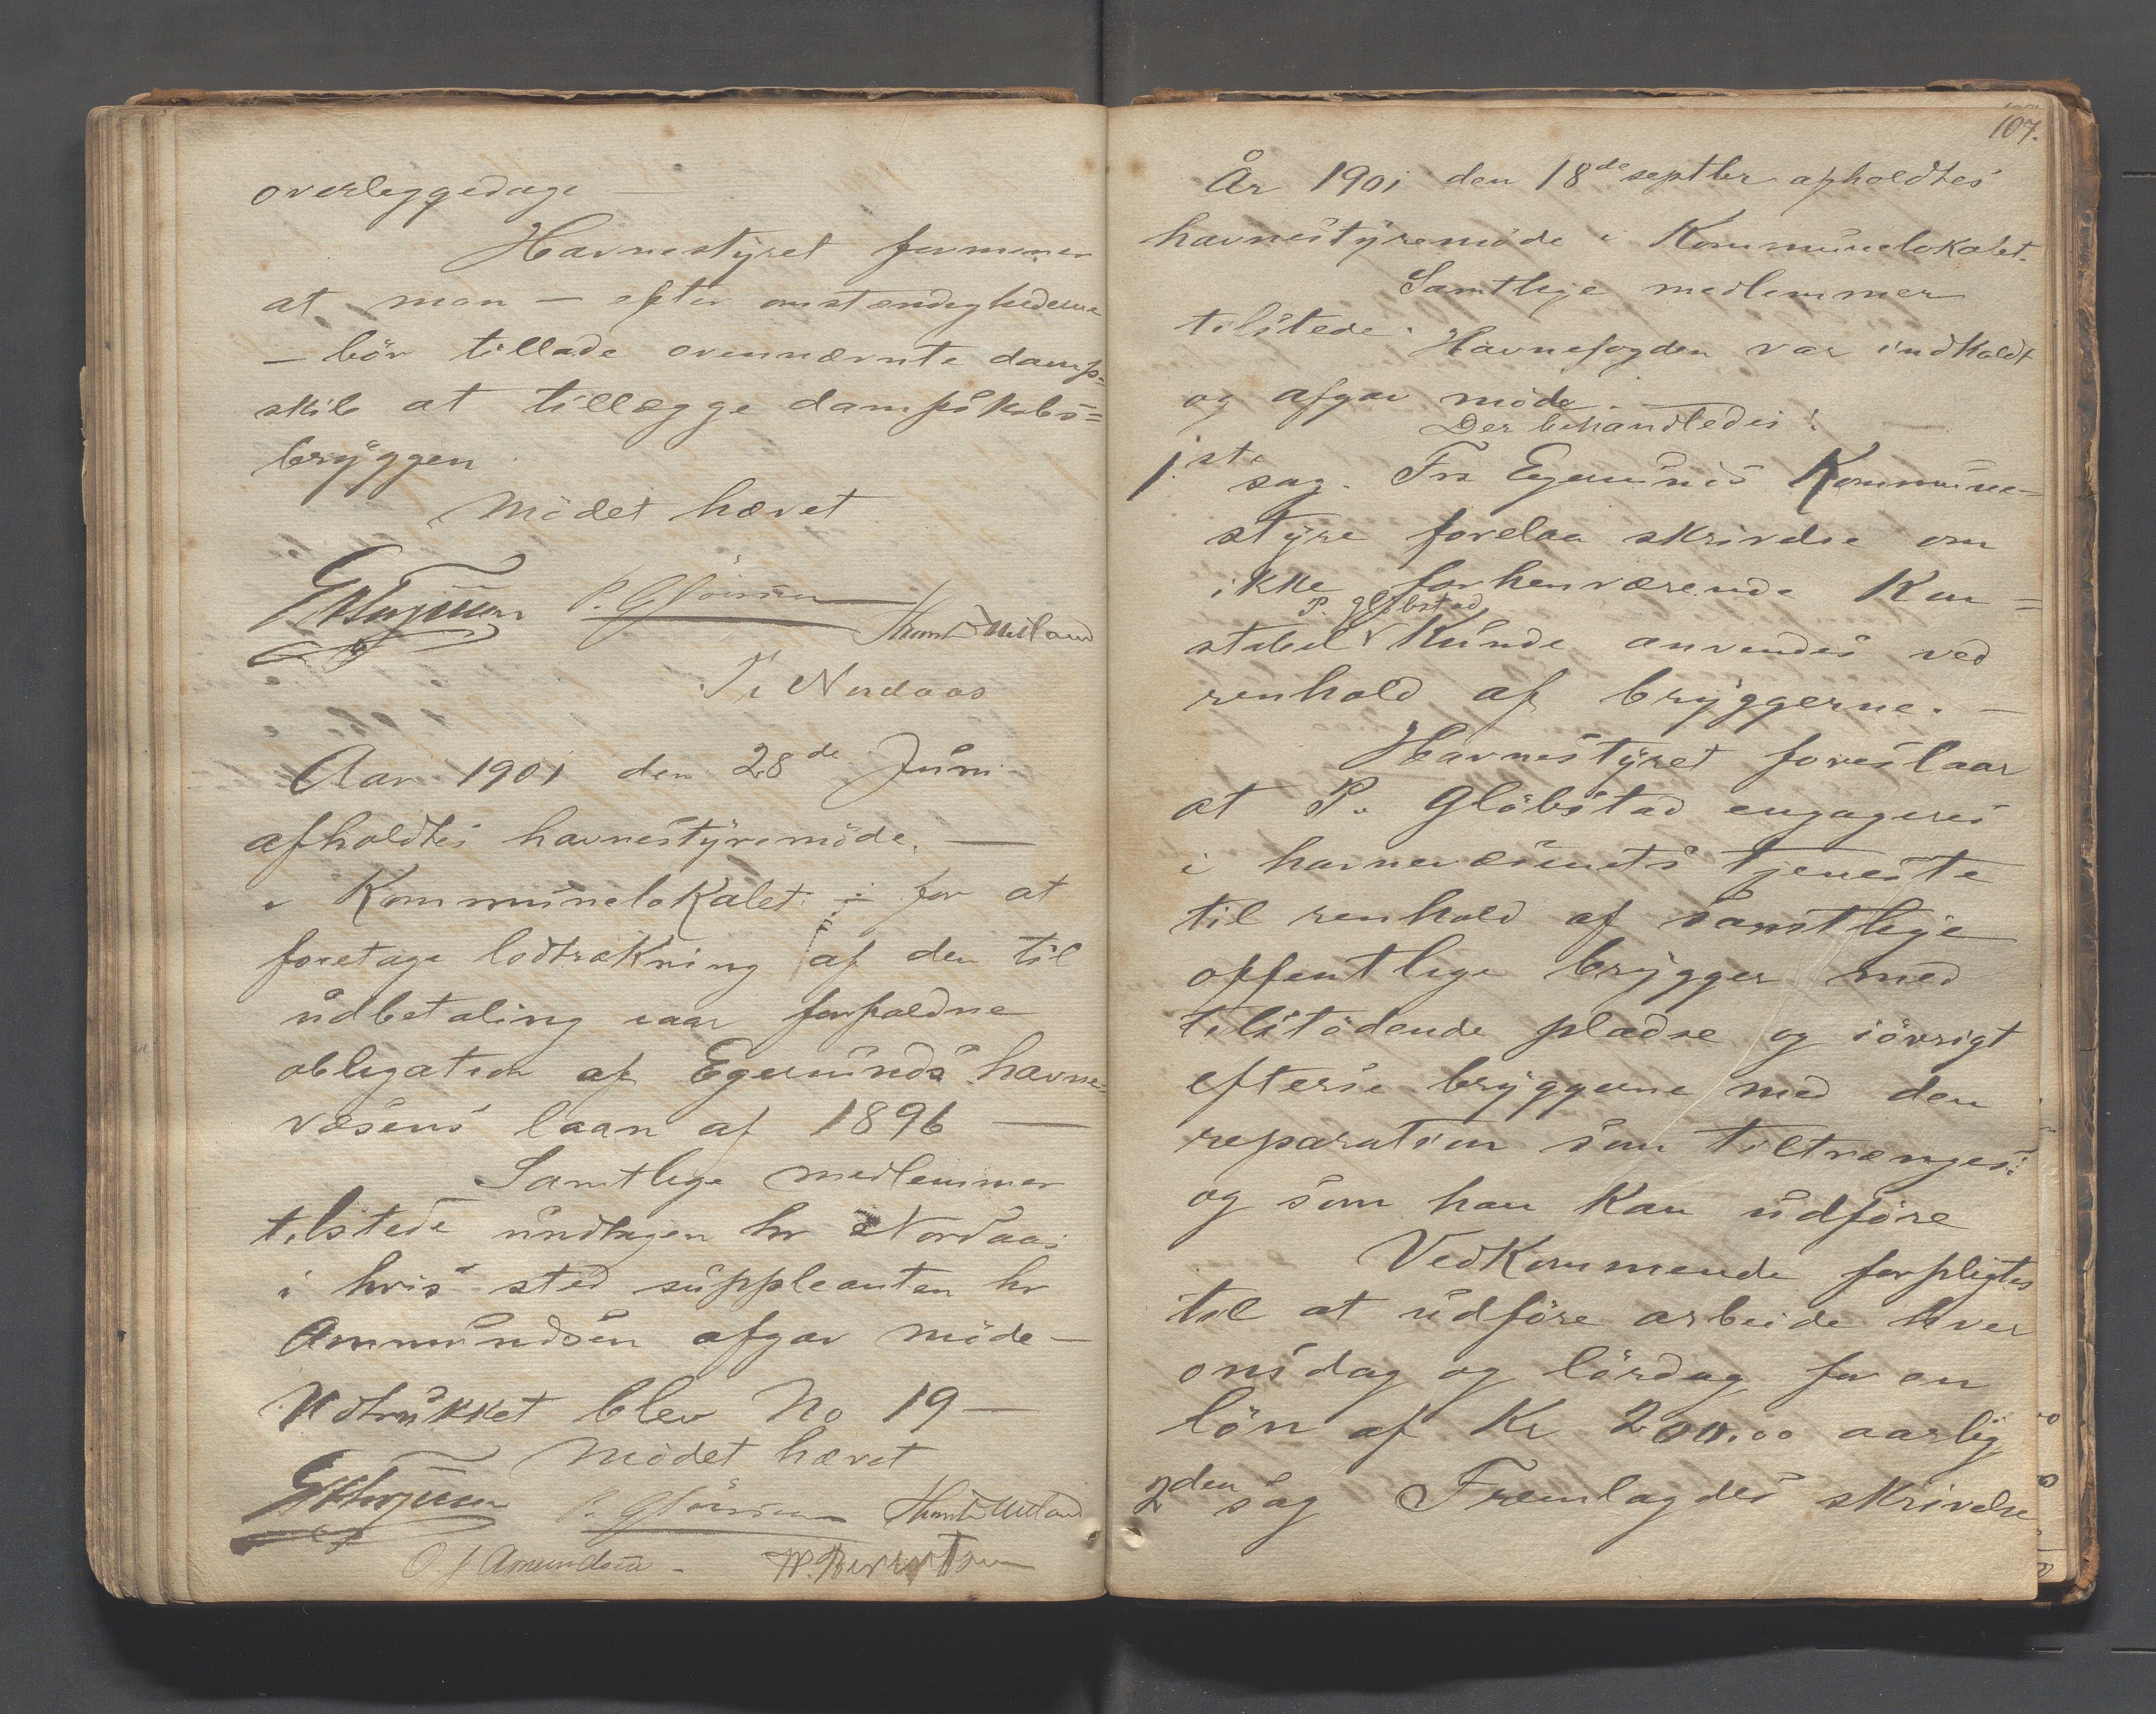 overleggedage
Havnestyret formener
at man – efter omstændighederne
– bör tillade ovennævnte damp=
skib at tillægge dampskibs=
bryggen
Mödet hævet
Aar 1901 den 28de Juni
afholdtes havnestyremöde. —
i Kommunelokalet for at
foretage lodtrækning af den til
udbetaling iaar forfaldne
obligation af Egersunds havne=
væsens laan af 1896 —
Samtlige medlemmer
tilstede undtagen hr Nordaas
i hvis sted suppleanten hr
Ammundsen afgav möde –
Udtrukket blev No 19 –
Mödet hævet
O J Amundsen –
107.
År 1901 den 18de septbr afholdtes
havnestyremöde i Kommunelokalet.
Samtlige medlemmer
tilstede. Havnefogden var indkaldt
og afgav möde. —
Der behandledes:
1ste sag. Fra Egersunds Kommune=
styre forelaa skrivelse om
ikke forhenværende Kon=
P. Glöbstad
stabel v kunde anvendes ved
renhold af bryggerne. —
Havnestyret foreslaar
at P. Glöbstad engageres
i havnevæsenets tjeneste
til renhold af samtlige
offentlige brygger med
tilstödende pladse og iövrigt
efterse bryggerne med den
reparation som tiltrænges
og som han kan udföre
Vedkommende forpligtes
til at udföre arbeide hver
onsdag og lördag for en
lön af Kr 200.00 aarlig
2den sag Fremlagdes skrivelse